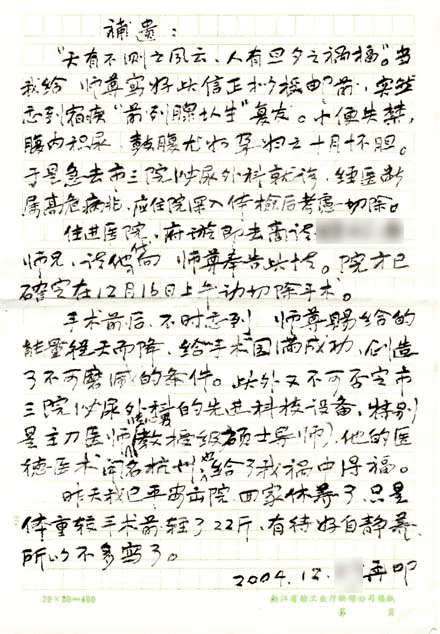 補遺：
“天有不测之风云，人有旦夕之祸福”。当
我给 师尊写好此信正拟摘邮前，突然
感到宿疾“前列腺增生”复发。小便失禁，
腹内积尿，鼓腹尤如妇之十月怀胎。
于是急去市三院泌尿外科就诊，经医
属高危病症，应住院深入体检后考虑切除。
住进医院，府 即去
师兄，请他代向 师尊奉告此情。院方已
确定在12月15日上午动切除手术。
手术前后，不时感到 师尊赐给的
能量经天而降，给手术圆满成功，创造
了不可磨灭的条件。此外又不可否定市
三院泌尿外科的先进科技设备，特别
是主刀医师(教授级硕士导师)，他的医
德医术闻名杭州，也给了我祸中得福。
昨天我已平安出院，回家休养了，只是
体重较手术前轻了22斤，有待好自静养，
所以不多写了。
2004.12. 再叩
20×20=400 浙江省轻工业厅 公司稿纸
第 页